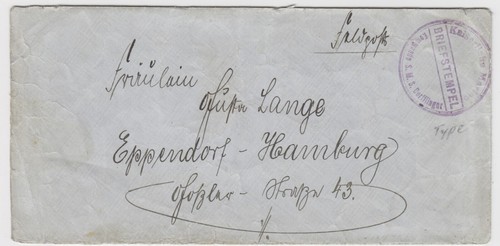 Feldpost
BRIEFSTEMPEL
Type
Fräulein
Gusta Lange
Eppendorf - Hamburg
Goßler - Straße 43.